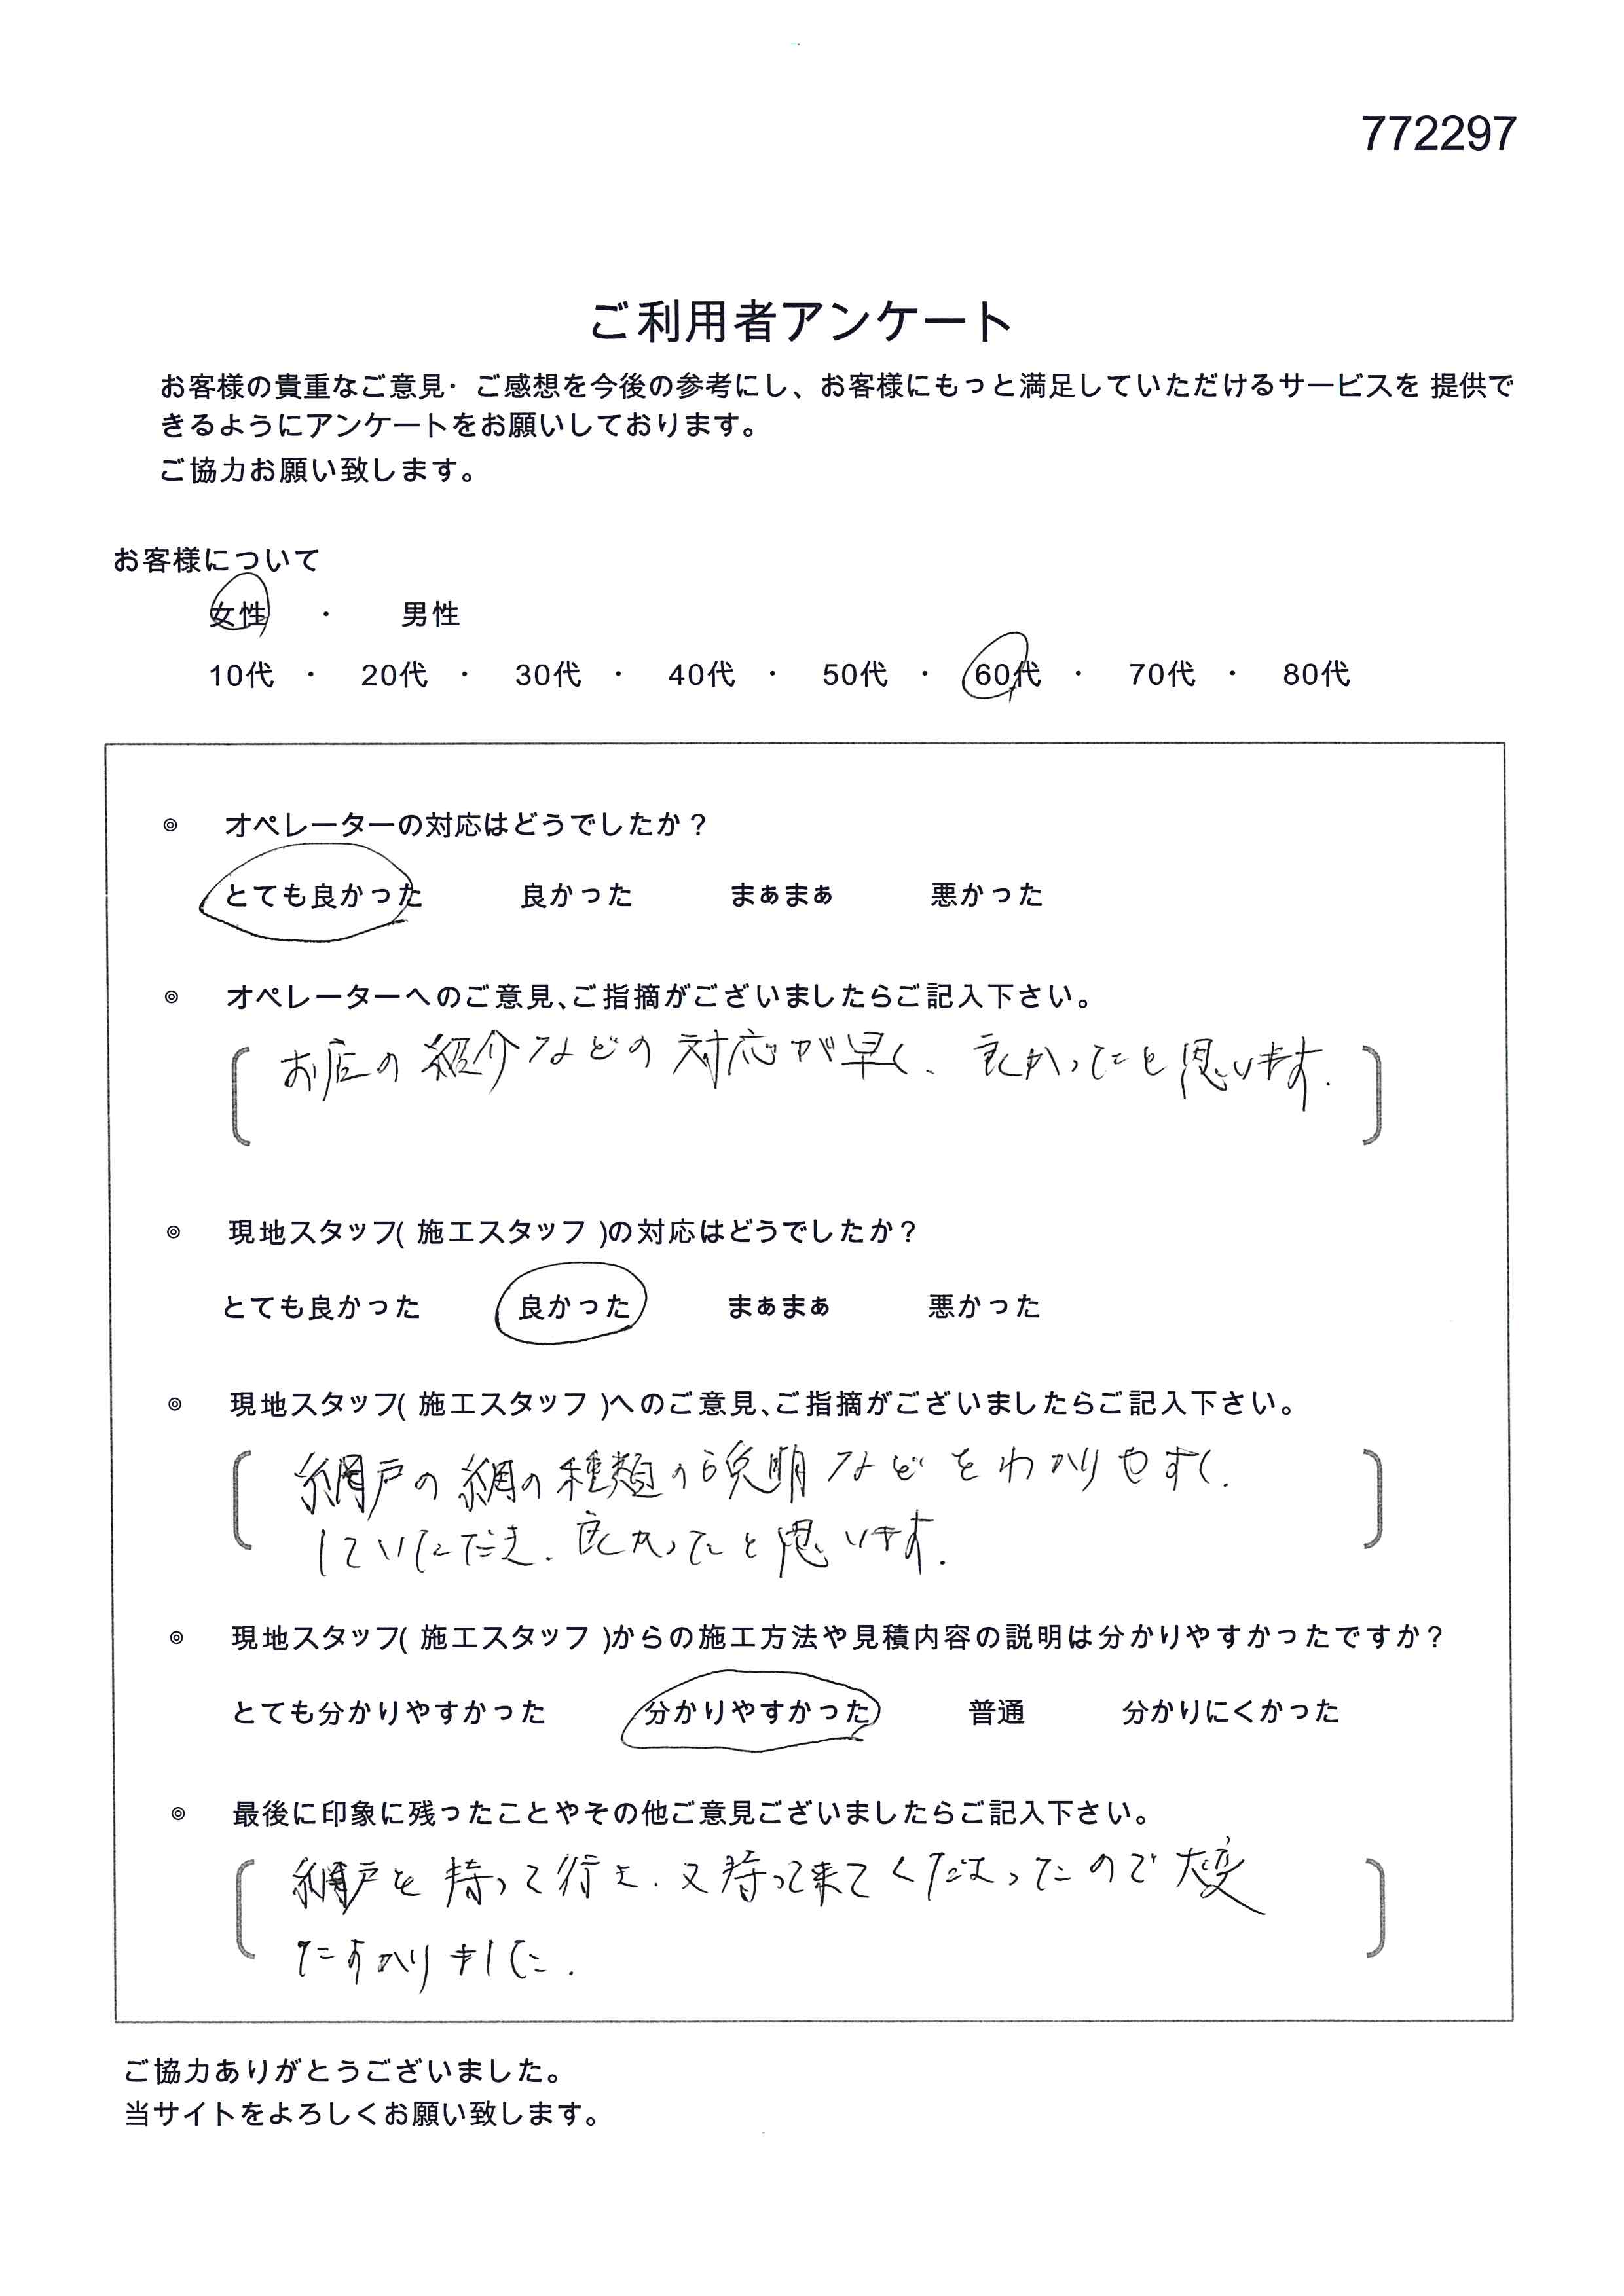 772297
ご利用者アンケート
お客様の貴重なご意見・ご感想を今後の参考にし、お客様にもっと満足していただけるサービスを 提供で
きるようにアンケートをお願いしております。
ご協力お願い致します。
お客様について
女性 ・ 男性
10代 ・ 20代 ・ 30代 ・ 40代 ・ 50代 ・ 60代 ・ 70代 ・ 80代
◎ オペレーターの対応はどうでしたか？
とても良かった 良かった まぁまぁ 悪かった
◎ オペレーターへのご意見、ご指摘がございましたらご記入下さい。
お店の紹介などの対応が早く、良かったと思います.
◎ 現地スタッフ( 施工スタッフ )の対応はどうでしたか？
とても良かった 良かった まぁまぁ 悪かった
◎ 現地スタッフ( 施工スタッフ )へのご意見、ご指摘がございましたらご記入下さい。
網戸の網の種類の説明などをわかりやすく.
していただき.良かったと思います.
◎ 現地スタッフ( 施工スタッフ )からの施工方法や見積内容の説明は分かりやすかったですか？
とても分かりやすかった 分かりやすかった 普通 分かりにくかった
◎ 最後に印象に残ったことやその他ご意見ございましたらご記入下さい。
網戸を持って行き.又持って来てくださったので大変
たすかりました.
ご協力ありがとうございました。
当サイトをよろしくお願い致します。